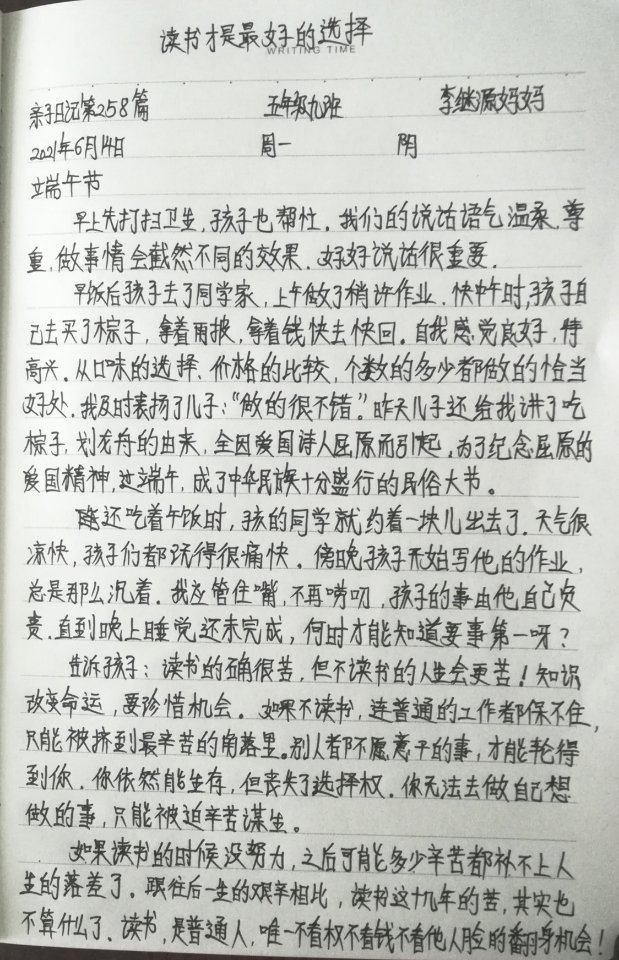 读书才是最好的选择
WRITING TIME
亲子日记第258篇 五年级九班 李继源妈妈
2021年6月14日 周一 阴
端午节
早上先打扫卫生,孩子也帮忙。我们的说话语气温柔,尊
重,做事情会截然不同的效果。好好说话很重要。
早饭后孩子去了同学家,上午做了稍许作业。快中午时,孩子自
己去买了棕子,拿着雨披,拿着钱快去快回。自我感觉良好,特
高兴。从口味的选择、价格的比较,个数的多少都做的恰当
好处。我及时表扬了儿子:“做的很不错。”昨天儿子还给我讲了吃
棕子,划龙舟的由来,全因爱国诗人屈原而引起。为了纪念屈原的
爱国精神,过端午,成了中华民族十分盛行的民俗大节。
还吃着午饭时,孩的同学就约着一块儿出去了。天气很
凉快,孩子们都玩得很痛快。傍晚孩子开始写他的作业,
总是那么沉着。我应管住嘴,不再唠叨,孩子的事由他自己负
责。直到晚上睡觉还未完成,何时才能知道要事第一呀?
告诉孩子:读书的确很苦,但不读书的人生会更苦!知识
改变命运,要珍惜机会。如果不读书,连普通的工作都保不住,
只能被挤到最辛苦的角落里。别人都不愿意干的事,才能轮得
到你。你依然能生存,但丧失了选择权。你无法去做自己想
做的事,只能被迫辛苦谋生。
如果读书的时候没努力,之后可能多少辛苦都补不上人
生的落差了。跟往后一生的艰辛相比,读书这十几年的苦,其实也
不算什么了。读书,是普通人,唯一不看权不看钱不看他人脸的翻身机会!